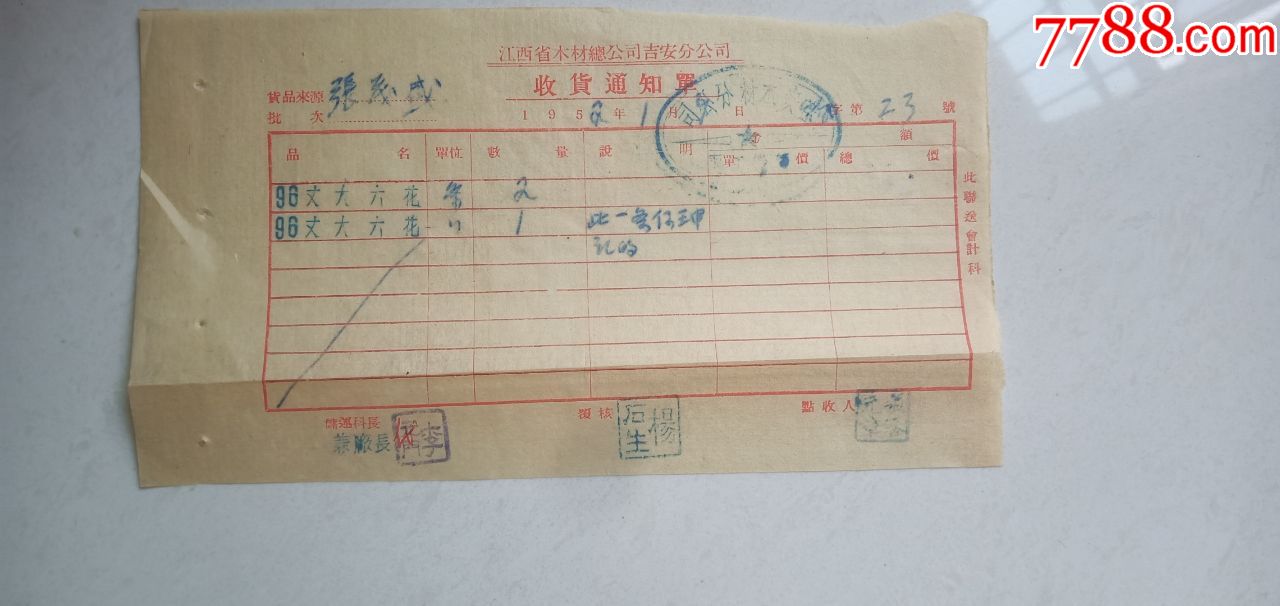 7788.com
江西省木材總公司吉安分公司
收貨通知單
貨品來源 張
批次
1952年1月 日 字第23號
品名 單位 數量 說明 金額
單價 總價
96丈大六花 条 2
96丈大六花 〃 1 此一条係
的
此聯送會計科
儲運科長 覆核 點收人
兼廠長 代 李
楊石生